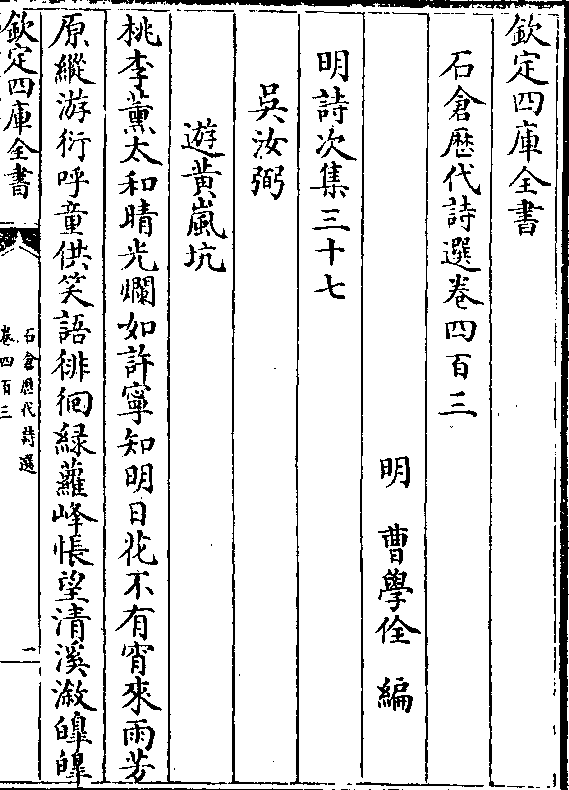 欽定四庫全書
石倉歷代詩選卷四百三
明　曹學佺　編
明詩次集三十七
吳汝弼
遊黃嵐坑
桃李薰太和晴光爛如許寧知明日花不有宵來雨芳
原縱游衍呼童供笑語徘徊緑蘿峰悵望清溪漵皥皥
欽定四庫全書
石倉歷代詩選
卷四百三
一